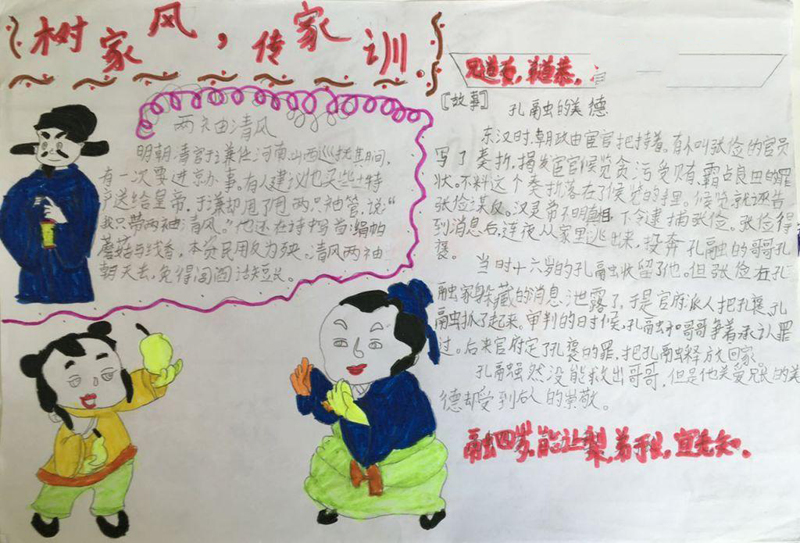 树家风，传家训
两袖清风
明朝清官于谦任河南山西巡抚其间，
有一次要进京办事，有人建议他买些土特
产送给皇帝，于谦却甩了甩两只袖管，说："
我只带两袖清风。"他还在诗中写首：绢帕
蘑菇与线香，本资民用反为殃。清风两袖
朝天去，免得阎阎话短长。
兄道友，弟道恭。
【故事】 孔融的美德
东汉时，朝政由宦官把持着，有人叫张俭的官员
写了奏折，揭发宦官侯览贪污受贿，霸占良田的罪
状。不料这个奏折落在了侯览的手里。侯览就诬告
张俭谋反。汉灵帝不明真相下令逮捕张俭。张俭得
到消息后，连夜从家里逃出来，投奔孔融的哥哥孔
褒。
当时十六岁的孔融收留了他。但张俭在孔
融家躲藏的消息泄露了，于是官府派人把孔褒、孔
融抓了起来。审判的日时候，孔融和哥哥争着承认罪
过。后来官府定了孔褒的罪，把孔融释放回家。
孔融虽然没能救出哥哥，但是他关爱兄长的美
德却受到后人的崇敬。
融四岁，能让梨，弟于长，宜先知。